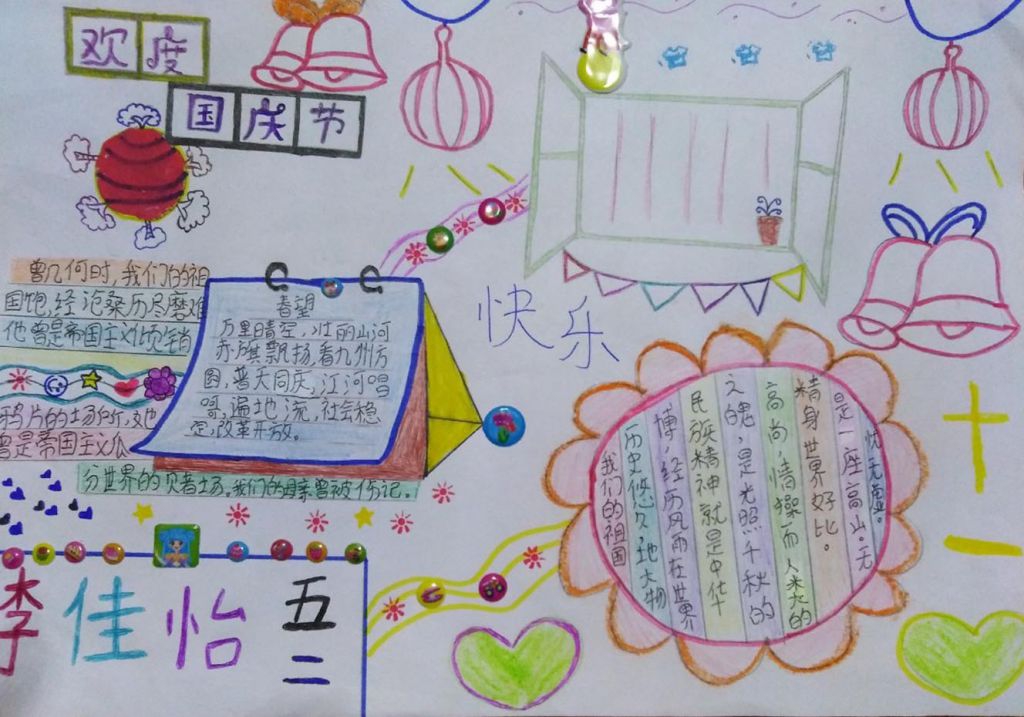 欢度
国庆节
曾几何时,我们的祖
国饱,经沧桑历尽磨难
他曾是帝国主义倾销
鸦片的场所,她
曾是帝国主义瓜
分世界的贝者场。我们的母亲曾被伤记。
春望
万里晴空,壮丽山河
赤旗飘扬,看九州方
圆,普天同庆,江河唱
哥,遍地流,社会稳
定,改革开放。
快乐
我们的祖国
历史悠久,地大物
博,经历风雨在世界
民族精神就是中华
之魂,是光照千秋的
高尚,情操而人类的
精身世界好比。
是一座高山。无
忧无虚。
十一
李佳怡
五二